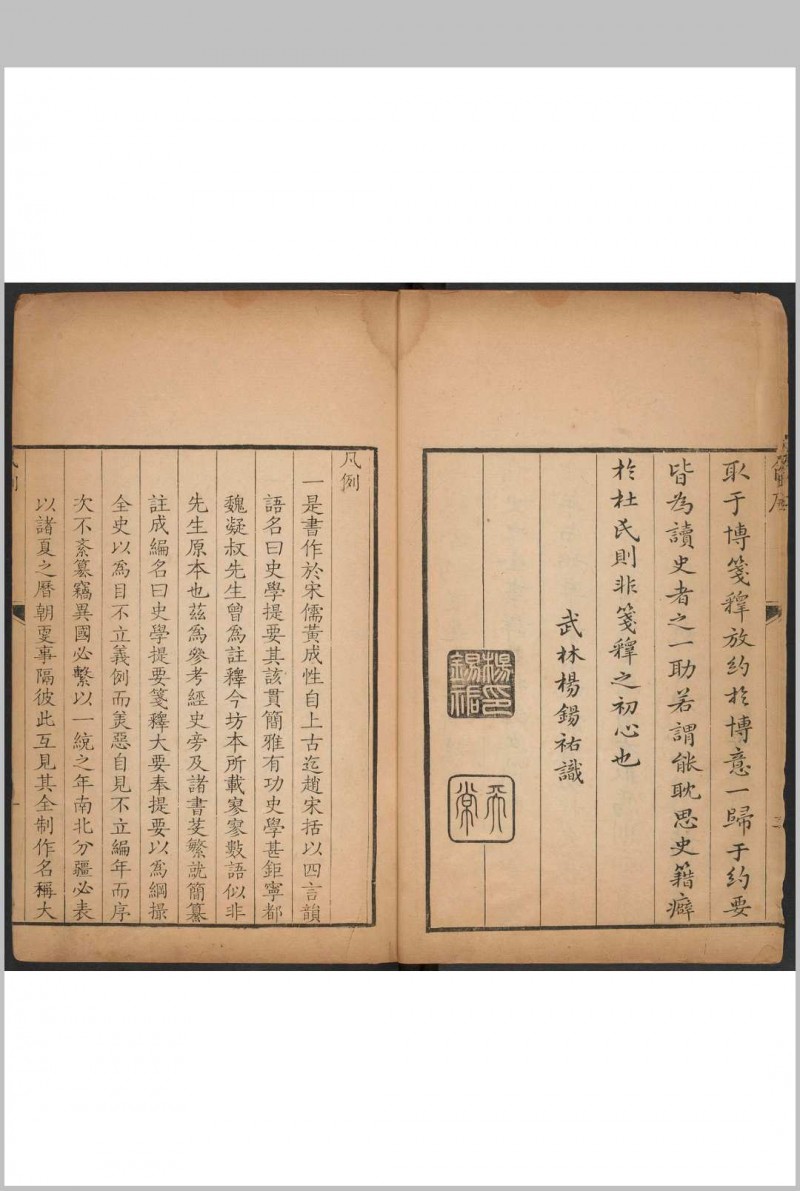 取于博箋釋放約於博意一歸于約要
皆為讀史者之一助若謂能耽思史籍癖
於杜氏則非箋釋之初心也
武林楊錫祐識
楊印錫祐
凡例
一是書作於宋儒黃成性自上古迄趙宋括以四言韻
語名曰史學提要其該貫簡雅有功史學甚鉅寧都
魏凝叔先生曾為註釋今坊本所載寥寥數語似非
先生原本也茲為參考經史旁及諸書芟繁就簡纂
註成編名曰史學提要箋釋大要奉提要以為綱撮
全史以為目不立義例而美惡自見不立編年而序
次不紊篡竊異國必繫以一統之年南北分疆必表
以諸夏之曆朝更事隔彼此互見其全制作名稱大